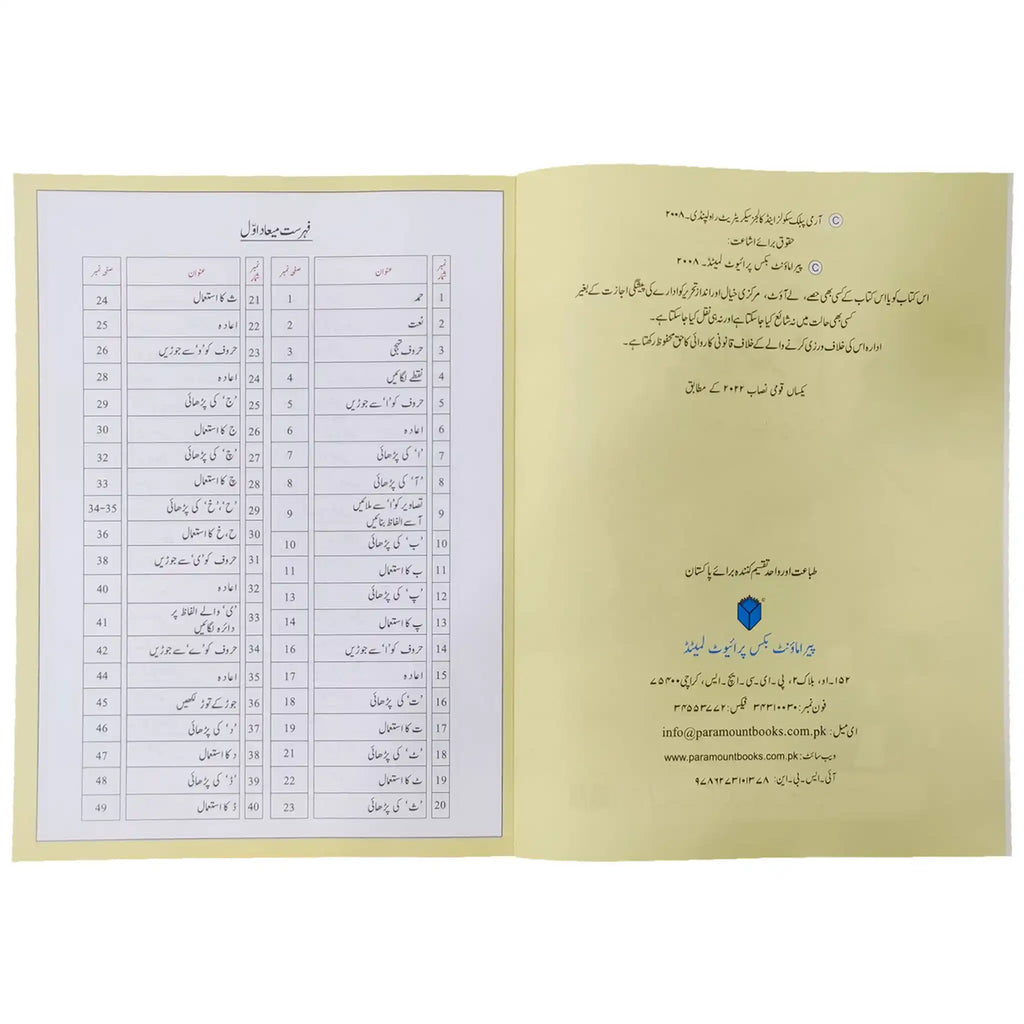 © آرمی پبلک سکولز اینڈ کالجز سیکریٹریٹ راولپنڈی۔ ۲۰۰۸
حقوق برائے اشاعت:
© پیراماؤنٹ بکس پرائیوٹ لمیٹڈ۔ ۲۰۰۸
اس کتاب کو یا اس کتاب کے کسی بھی حصے، لے آؤٹ، مرکزی خیال اور انداز تحریر کو ادارے کی پیشگی اجازت کے بغیر
کسی بھی حالت میں نہ شائع کیا جا سکتا ہے اور نہ ہی نقل کیا جا سکتا ہے۔
ادارہ اس کی خلاف ورزی کرنے والے کے خلاف قانونی کاروائی کا حق محفوظ رکھتا ہے۔
یکساں قومی نصاب ۲۰۲۲ کے مطابق
طباعت اور واحد تقسیم کنندہ برائے پاکستان
پیراماؤنٹ بکس پرائیوٹ لمیٹڈ
۱۵۲۔او، بلاک ۲، پی۔ای۔سی۔ایچ۔ایس، کراچی ۷۵۴۰۰
فون نمبر: ۳۴۳۱۰۰۳۰ فیکس: ۳۴۵۵۳۷۷۲
ای میل: info@paramountbooks.com.pk
ویب سائٹ: www.paramountbooks.com.pk
آئی۔ایس۔بی۔این: ۹۷۸۶۲۷۳۱۰۱۳۷۸
فہرست میعاد اوّل
نمبر شمار عنوان صفحہ نمبر
1 حمد 1
2 نعت 2
3 حروف تہجی 3
4 نقطے لگائیں 4
5 حروف کو ’ا‘ سے جوڑیں 5
6 اعادہ 6
7 ’ا‘ کی پڑھائی 7
8 ’آ‘ کی پڑھائی 8
9 تصاویر کو ’ا‘ سے ملائیں 9
آ سے الفاظ بنائیں
10 ’ب‘ کی پڑھائی 10
11 ب کا استعمال 11
12 ’پ‘ کی پڑھائی 13
13 پ کا استعمال 14
14 حروف کو ’ا‘ سے جوڑیں 16
15 اعادہ 17
16 ’ت‘ کی پڑھائی 18
17 ت کا استعمال 19
18 ’ٹ‘ کی پڑھائی 21
19 ٹ کا استعمال 22
20 ’ث‘ کی پڑھائی 23
نمبر شمار عنوان صفحہ نمبر
21 ث کا استعمال 24
22 اعادہ 25
23 حروف کو ’و‘ سے جوڑیں 26
24 اعادہ 28
25 ’ج‘ کی پڑھائی 29
26 ج کا استعمال 30
27 ’چ‘ کی پڑھائی 32
28 چ کا استعمال 33
29 ’ح‘، ’خ‘ کی پڑھائی 34-35
30 ح، خ کا استعمال 36
31 حروف کو ’ی‘ سے جوڑیں 38
32 اعادہ 40
33 ’ی‘ والے الفاظ پر 41
دائرہ لگائیں
34 حروف کو ’ے‘ سے جوڑیں 42
35 اعادہ 44
36 جوڑ کے توڑ لکھیں 45
37 ’د‘ کی پڑھائی 46
38 د کا استعمال 47
39 ’ڈ‘ کی پڑھائی 48
40 ڈ کا استعمال 49